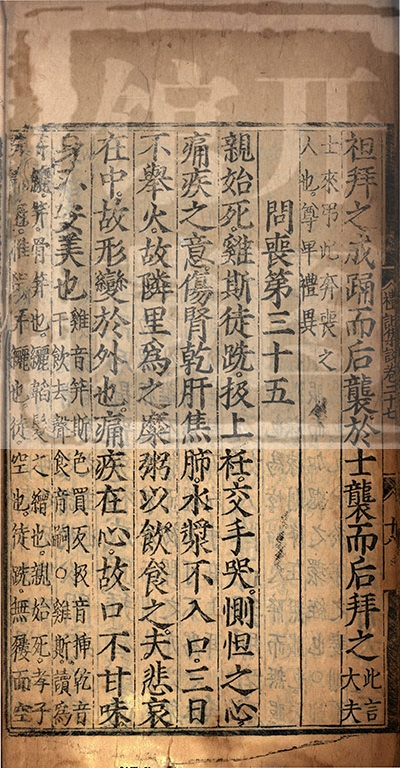 袒拜之成踊而后襲於士襲而后拜之此言大夫
士來弔此奔喪之人也尊卑禮異
問喪第三十五
親始死雞斯徒跣扱上衽交手哭惻怛之心
痛疾之意傷腎乾肝焦肺水漿不入口三日
不舉火故鄰里爲之糜粥以飲食之夫悲哀
在中故形變於外也痛疾在心故口不甘味
身不安美也雞音筓斯色買反扱音揷乾音干飲去聲食音嗣○雞斯讀爲
筓纚筓骨筓也纚韜髮之繒也親始死孝子
筓纚也徒空也徒跣無屨而空